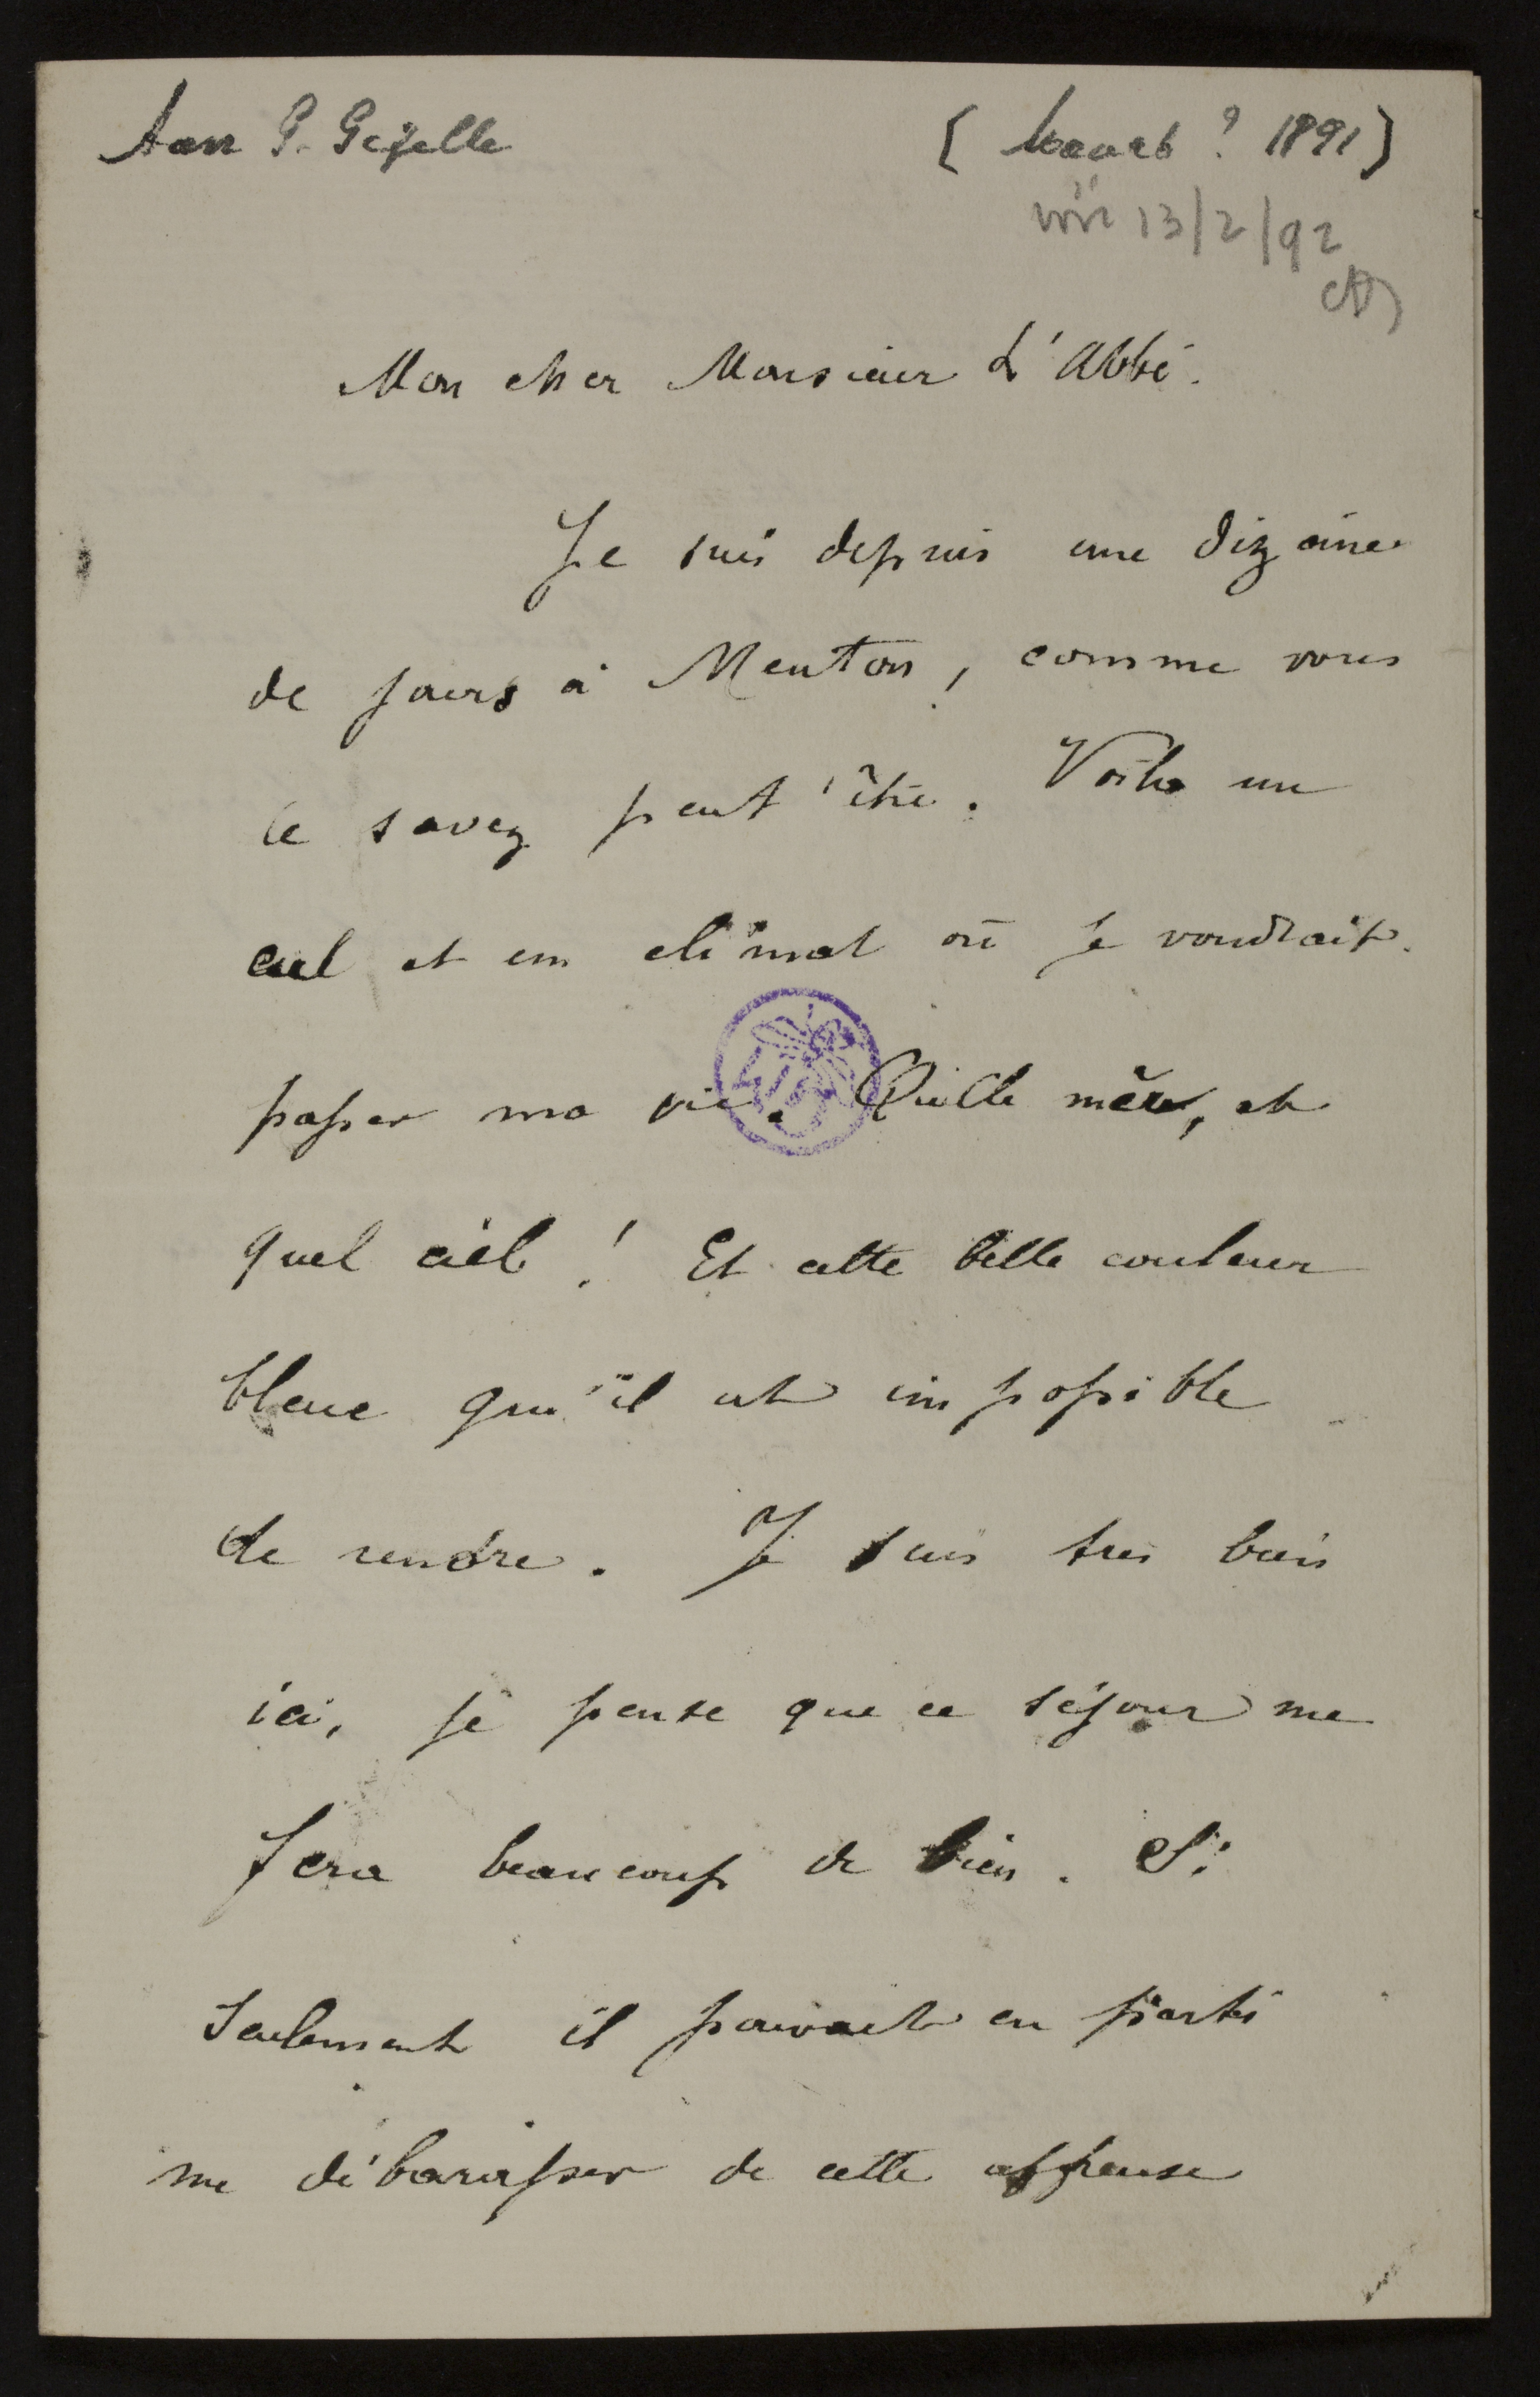 Aan G. Gezelle
[Maart ? 1891]
vóór 13/2/92
Mon cher Monsieur L'Abbé.
Je suis depuis une dizaine
de jours à Menton, comme vous
le savez peut'être. Voila un
ciel et un climat où je voudrais
passer ma vie. Quelle mèr, et
quel ciel! Et cette belle couleur
bleue qu'il est impossible
de rendre. Je suis tres bien
ici, je pense que ce séjour me
fera beaucoup de bien. Si
seulement il pouvait en partie
me débarasser de cette affreuse